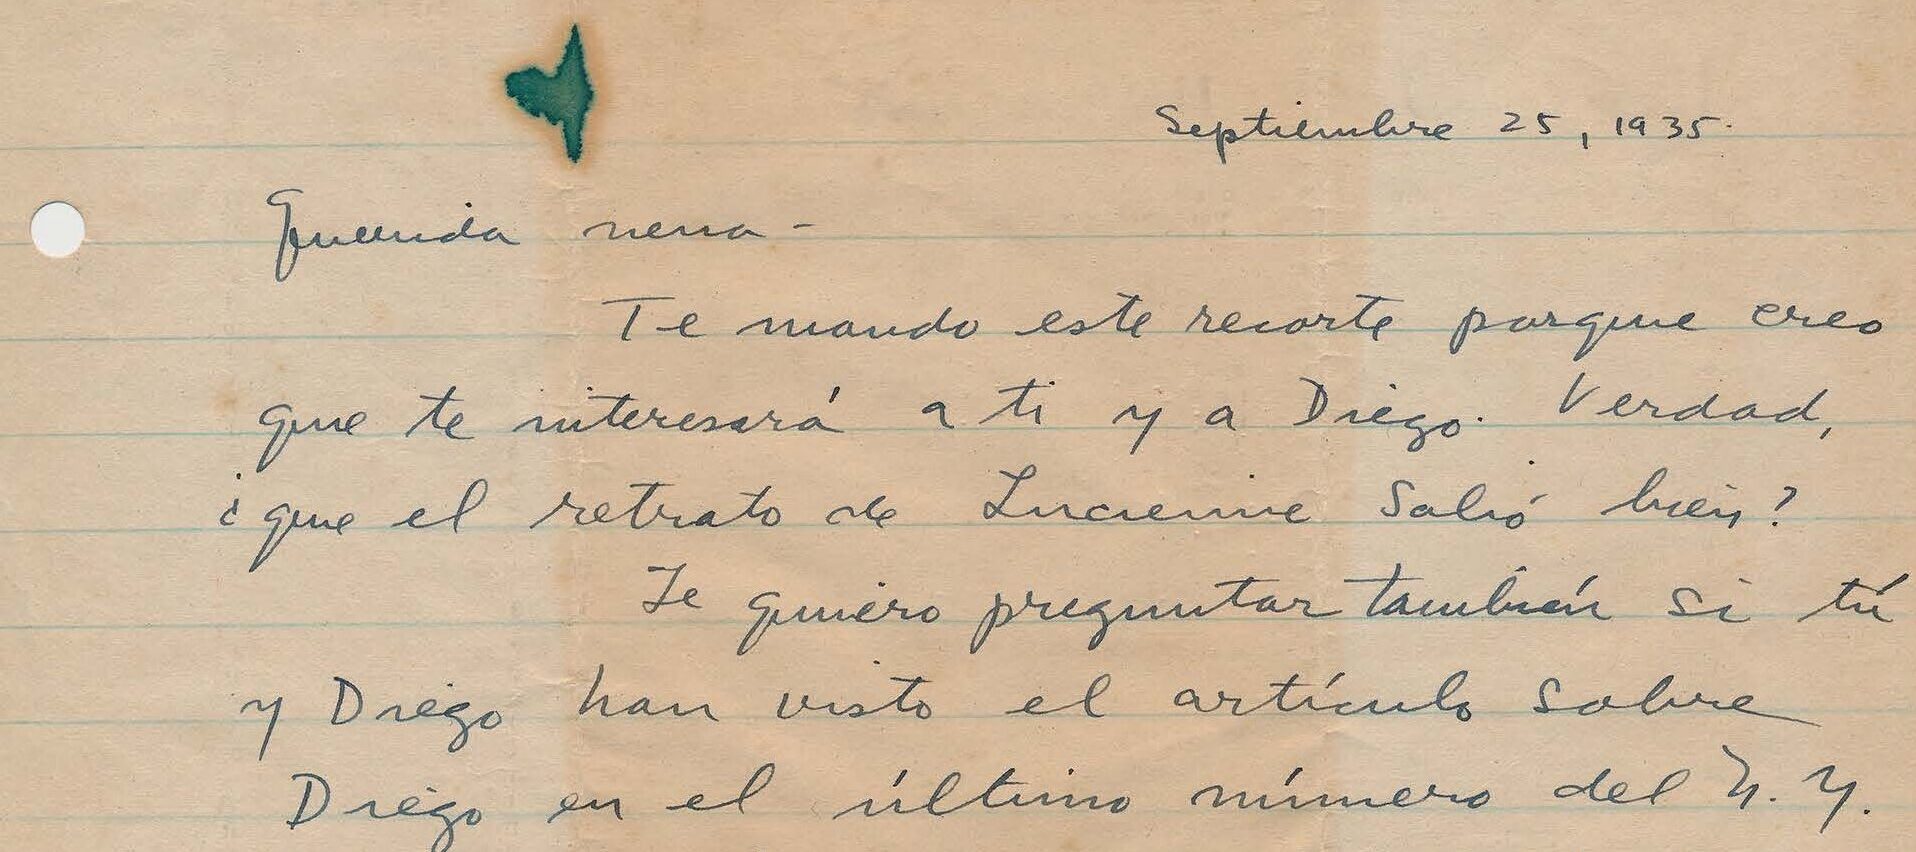 Septiembre 25, 1935.
Querida nena -
Te mando este recorte porque creo
que te interesará a ti y a Diego. Verdad,
¿que el retrato de Lucienne salió bien?
Te quiero preguntar también si tú
y Diego han visto el artículo sobre
Diego en el último número del N. Y.